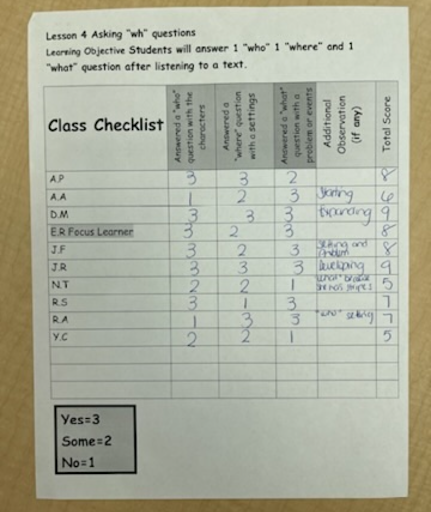 Lesson 4 Asking "wh" questions
Learning Objective Students will answer 1 "who" 1 "where" and 1
"what" question after listening to a text.
Class Checklist
Answered a "who"
question with the
characters
Answered a
"where" question
with a settings
Answered a "what"
question with a
problem or events
Additional
Observation
(if any)
Total Score
A.P 3 3 2 8
A.A 1 2 3 6
D.M 3 3 3 Expanding 9
E.R Focus Learner 3 2 3 8
J.F 3 2 3 Setting and Problem 8
J.R 3 3 3 Developing 9
N.T 2 2 1 5
R.S 3 1 3 7
R.A 1 3 3 "who" setting 7
Y.C 2 2 1 5
Yes=3
Some=2
No=1